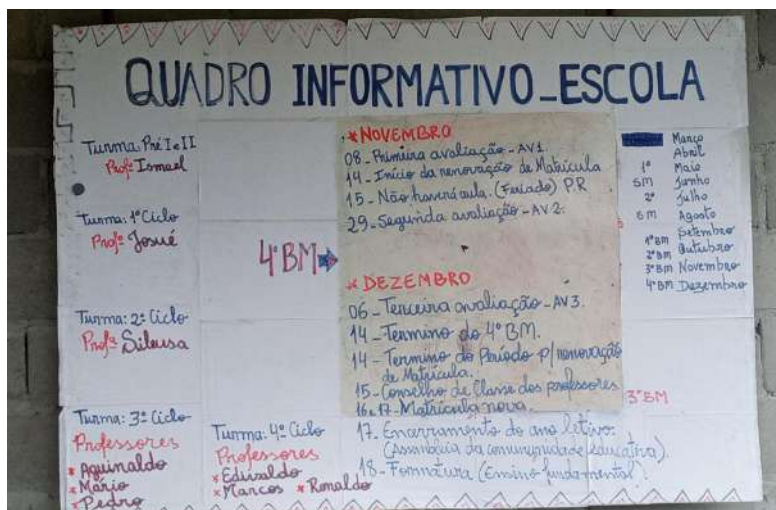 QUADRO INFORMATIVO_ESCOLA
Turma: Pré I e II
Profº Ismael
Turma: 1º Ciclo
Profº Josué
Turma: 2º Ciclo
Profª Sileusa
Turma: 3º Ciclo
Professores
* Aguinaldo
* Mário
* Pedro
Turma: 4º Ciclo
Professores
* Edivaldo
* Marcos * Ronaldo
4º BM
* NOVEMBRO
08 - Primeira avaliação - AV1.
14 - Início da renovação de Matrícula
15 - Não haverá aula. (Feriado) P.R
29 - Segunda avaliação - AV2.
* DEZEMBRO
06 - Terceira avaliação - AV3.
14 - Termino do 4º BM.
14 - Termino do Período p/ renovação
de Matrícula.
15 - Conselho de Classe dos professores
16 e 17 - Matrícula nova.
17. Encerramento do ano letivo:
(Assembleia da comunidade educativa).
18 - Formatura (Ensino fundamental).
Março
Abril
1º Maio
SM Junho
2º Julho
SM Agosto
Setembro
1º BM
2º BM Outubro
3º BM Novembro
4º BM Dezembro
3º BM